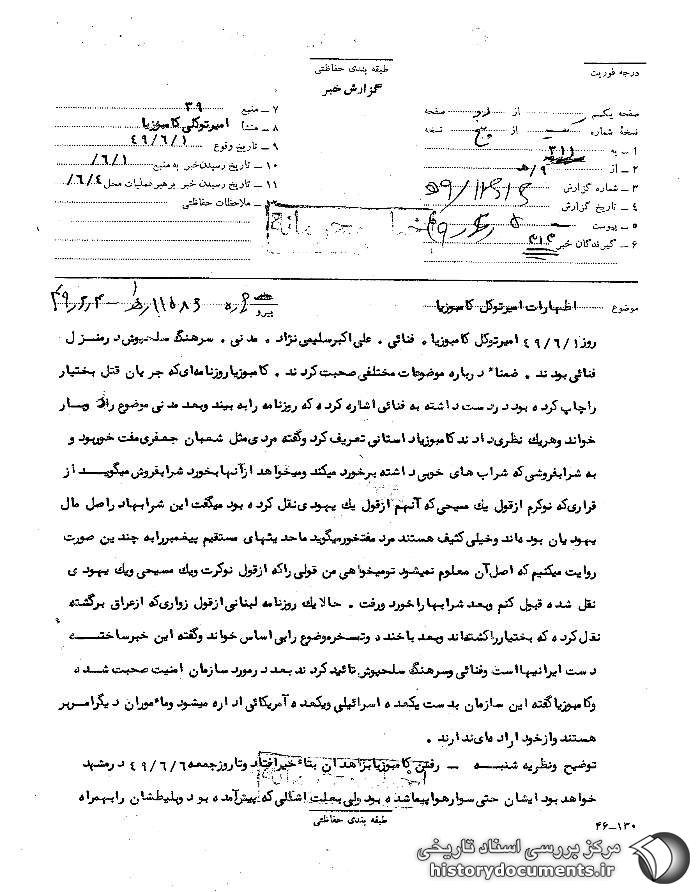 طبقه بندی حفاظتی
درجه فوریت
گزارش خبر
صفحه یکم از دو صفحه
نسخهٔ شماره از پنج نسخه
۱ – به ۳۱۱
۲ – از ۹/ه
۳ – شماره گزارش
۴ – تاریخ گزارش
۵ – پیوست
۶ – گیرندگان خبر
۷ – منبع ۳۹
۸ – منشأ امیرتوکلی کامبوزیا
۹ – تاریخ وقوع ۴۹/۶/۱
۱۰ – تاریخ رسیدن خبر به منبع ۶/۱/
۱۱ – تاریخ رسیدن خبر برهبر عملیات محل ۶/۴/
۱۲ – ملاحظات حفاظتی
موضوع اظهارات امیرتوکل کامبوزیا
پیرو
روز ۴۹/۶/۱ امیرتوکل کامبوزیا . فنائی . علی اکبرسلیمی نژاد . مدنی . سرهنگ سلحپوش درمنزل
فنائی بودند . ضمناً درباره موضوعات مختلفی صحبت کردند . کامبوزیا روزنامه ای که جریان قتل بختیار
را چاپ کرده بود در دست داشته به فنائی اشاره کرده که روزنامه را به بیند وبعد مدنی موضوع را وبسار
خواند وهریک نظری دادند کامبوزیا داستانی تعریف کرد وگفته مردی مثل شعبان جعفری مفت خوربود و
به شرابفروشی که شراب های خوبی داشته برخورد میکند ومیخواهد از آنها بخورد شرابفروش میگوید از
قراری که نوکرم از قول یک مسیحی که آنهم از قول یک یهودی نقل کرده بود میگفت این شرابها دراصل مال
یهودیان بوده اند وخیلی کثیف هستند مرد مفتخور میگوید ما حدیثهای مستقیم پیغمبر را به چندین صورت
روایت میکنیم که اصل آن معلوم نمیشود تو میخواهی من قولی را که از قول نوکرت ویک مسیحی ویک یهودی
نقل شده قبول کنم وبعد شرابها را خورد ورفت . حالا یک روزنامه لبنانی از قول زواری که از عراق برگشته
نقل کرده که بختیار را کشته اند وبعد با خنده وتمسخر موضوع را بی اساس خواند وگفته این خبر ساخته
دست ایرانیها است وفنائی وسرهنگ سلحپوش تائید کردند بعد درمورد سازمان امنیت صحبت شده
وکامبوزیا گفته این سازمان بدست یکعده اسرائیلی ویکعده آمریکائی اداره میشود وماموران دیگر امربر
هستند واز خود اراده ای ندارند .
توضیح ونظریه شنبه – رفتن کامبوزیا بزاهدان بتاخیر افتاد وتا روزجمعه ۴۹/۶/۶ درمشهد
خواهد بود ایشان حتی سوار هواپیما شده بود ولی بعلت اشکالی که پیش آمده بود وبلیطشان را بهمراه
طبقه بندی حفاظتی
۴۶–۱۳۰
مرکز بررسی اسناد تاریخی
historydocuments.ir